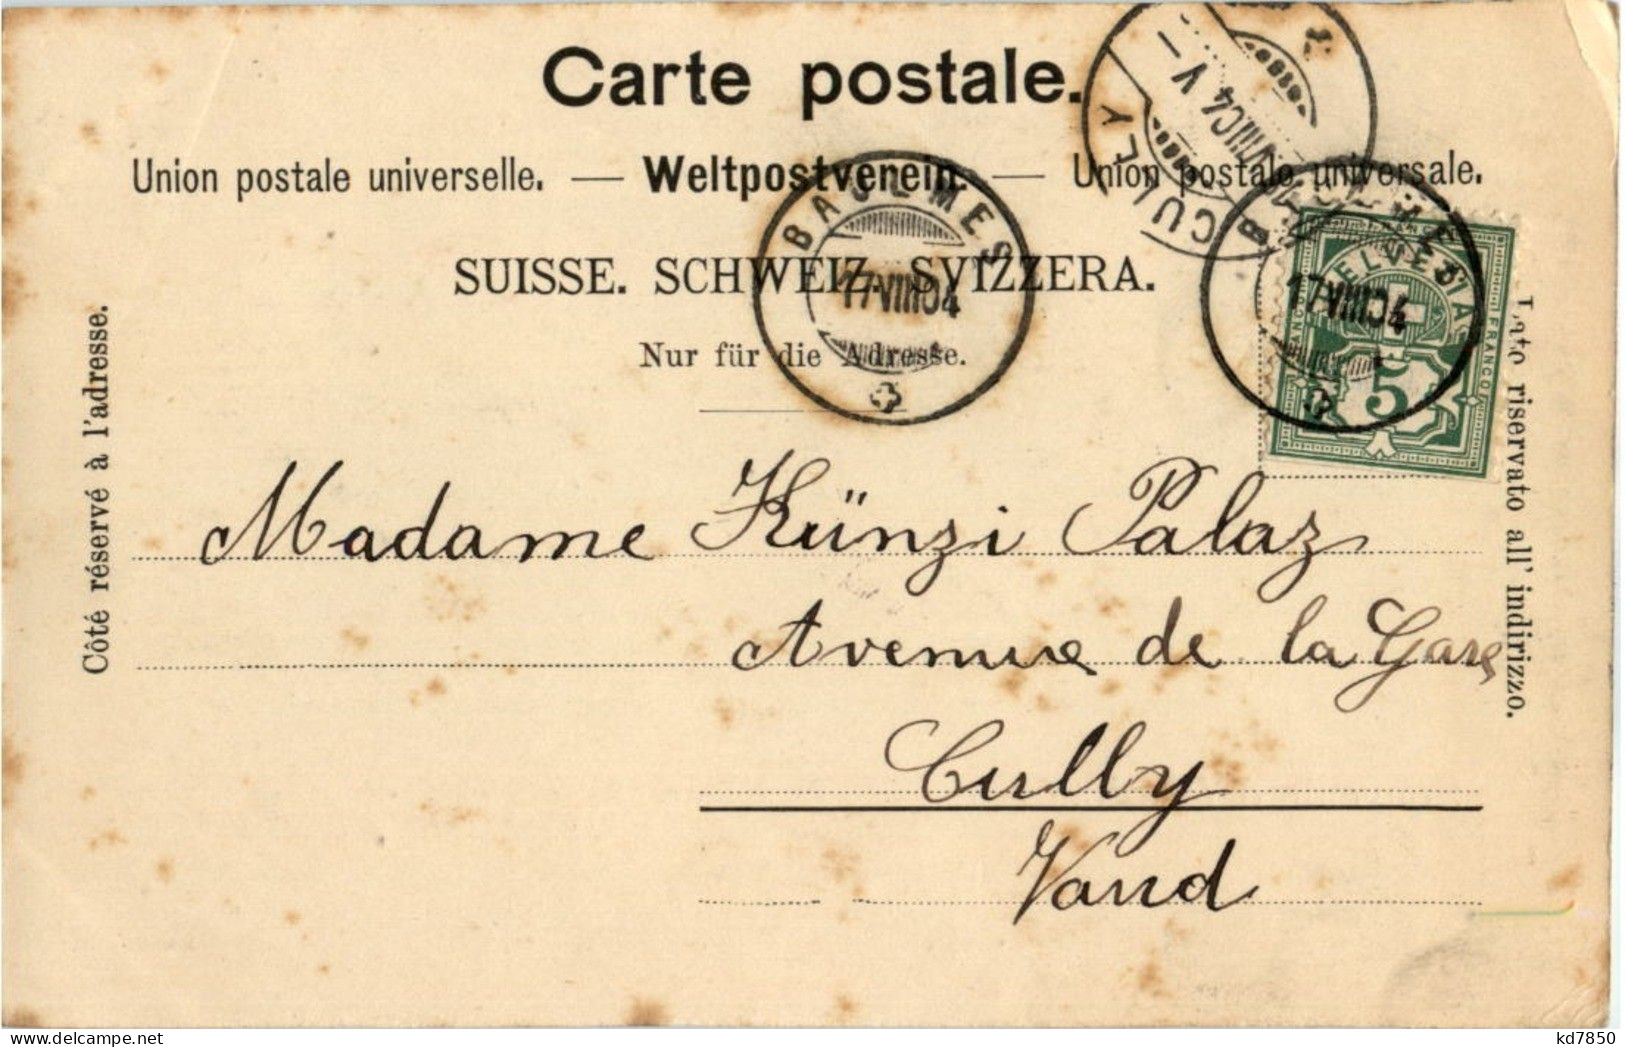 Carte postale.
Union postale universelle. — Weltpostverein. — Union postale universale.
SUISSE. SCHWEIZ. SVIZZERA.
Nur für die Adresse.
Côté réservé à l'adresse.
Lato riservato all' indirizzo.
BAULMES
17 VIII 04
CULLY
BAULMES
17 VIII 04
HELVETIA
FRANCO
5
Madame Künzi Palaz
Avenue de la Gare
Cully
Vaud
kd7850